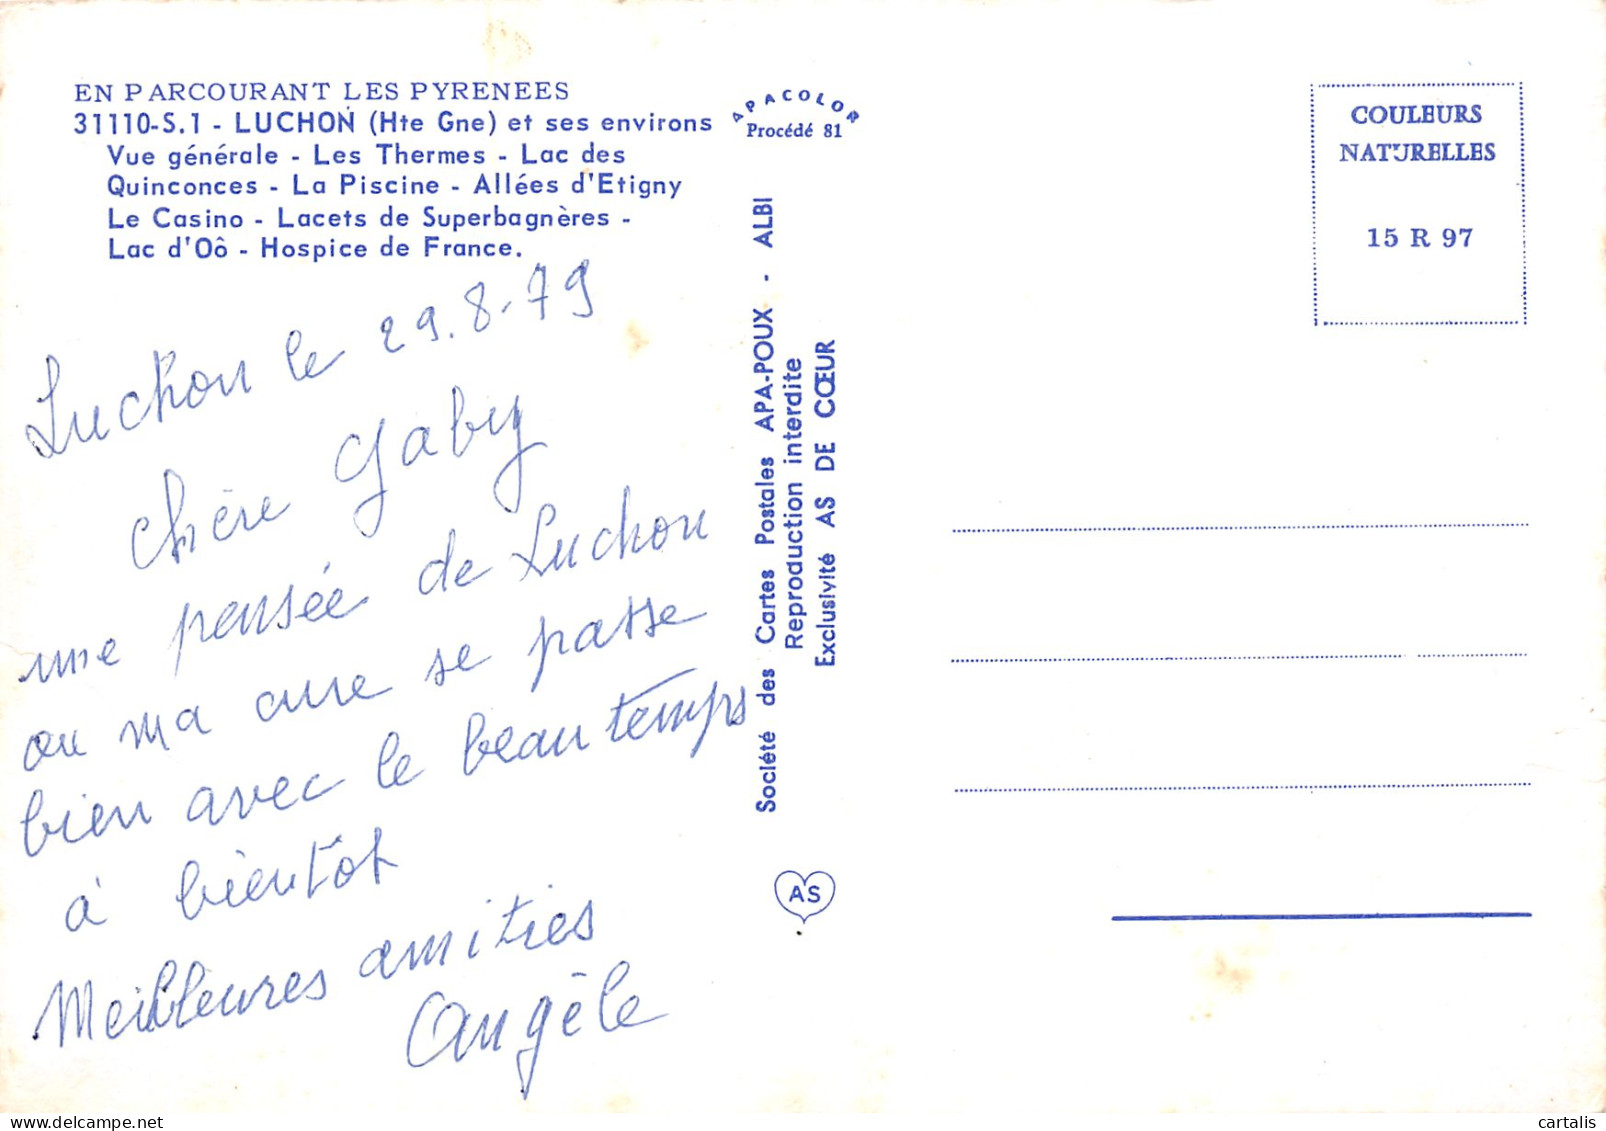 EN PARCOURANT LES PYRENEES
31110-S.1 - LUCHON (Hte Gne) et ses environs
Vue générale - Les Thermes - Lac des
Quinconces - La Piscine - Allées d'Etigny
Le Casino - Lacets de Superbagnères -
Lac d'Oô - Hospice de France.
APACOLOR
Procédé 81
COULEURS
NATURELLES
15 R 97
Luchon le 29.8-79
Chère Gaby
une pensée de Luchon
ou ma cure se passe
bien avec le beau temps
à bientot
Meilleures amitiés
Angèle
Société des Cartes Postales APA-POUX - ALBI
Reproduction interdite
Exclusivité AS DE CŒUR
AS
delcampe.net
cartalis